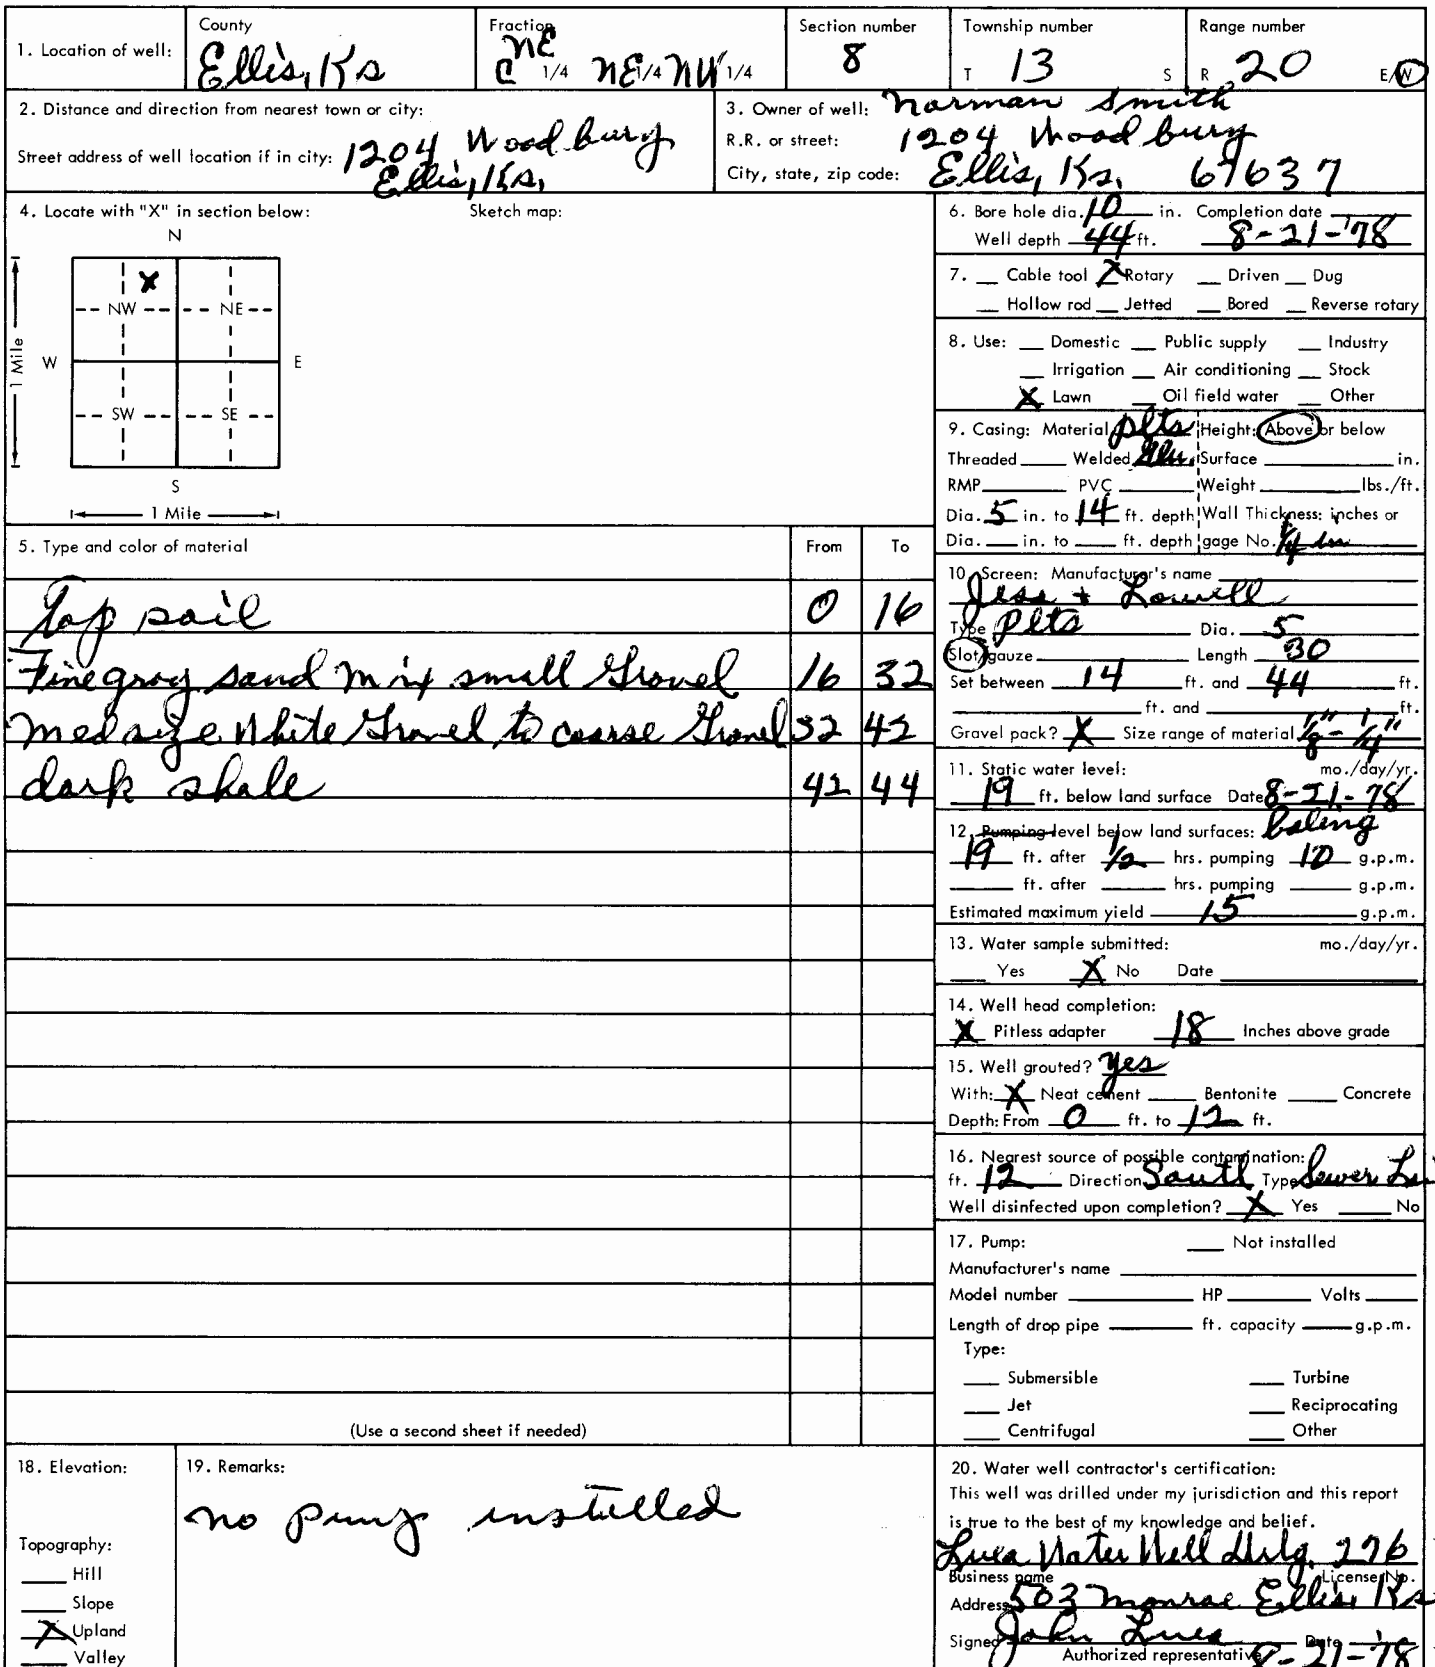 1. Location of well: County Ellis, Ks Fraction C NE 1/4 NE 1/4 NW 1/4 Section number 8 Township number T 13 S Range number R 20 E/W
2. Distance and direction from nearest town or city:
Street address of well location if in city: 1204 Woodbury
Ellis, Ks.
3. Owner of well: Norman Smith
R.R. or street: 1204 Woodbury
City, state, zip code: Ellis, Ks. 67637
4. Locate with "X" in section below: Sketch map:
N
X
NW NE
W E
1 Mile
SW SE
S
1 Mile
5. Type and color of material From To
Top soil 0 16
Fine gray sand mix small Gravel 16 32
Med size White Gravel to coarse Gravel 32 42
dark shale 42 44
(Use a second sheet if needed)
6. Bore hole dia. 10 in. Completion date
Well depth 44 ft. 8-21-'78
7. Cable tool X Rotary Driven Dug
Hollow rod Jetted Bored Reverse rotary
8. Use: Domestic Public supply Industry
Irrigation Air conditioning Stock
X Lawn Oil field water Other
9. Casing: Material plts Height: Above or below
Threaded Welded Surface in.
RMP PVC Weight lbs./ft.
Dia. 5 in. to 14 ft. depth Wall Thickness: inches or
Dia. in. to ft. depth gage No. 1/4 in
10. Screen: Manufacturer's name
Jess + Lowell
Type plts Dia. 5
Slot/gauze Length 30
Set between 14 ft. and 44 ft.
ft. and ft.
Gravel pack? X Size range of material 1/8" - 1/4"
11. Static water level: mo./day/yr.
19 ft. below land surface Date 8-21-78
12. Pumping level below land surfaces: baling
19 ft. after 1/2 hrs. pumping 10 g.p.m.
ft. after hrs. pumping g.p.m.
Estimated maximum yield 15 g.p.m.
13. Water sample submitted: mo./day/yr.
Yes X No Date
14. Well head completion:
X Pitless adapter 18 Inches above grade
15. Well grouted? yes
With: X Neat cement Bentonite Concrete
Depth: From 0 ft. to 12 ft.
16. Nearest source of possible contamination:
ft. 12 Direction South Type Sewer
Well disinfected upon completion? X Yes No
17. Pump: Not installed
Manufacturer's name
Model number HP Volts
Length of drop pipe ft. capacity g.p.m.
Type:
Submersible Turbine
Jet Reciprocating
Centrifugal Other
18. Elevation:
Topography:
Hill
Slope
X Upland
Valley
19. Remarks:
no pump installed
20. Water well contractor's certification:
This well was drilled under my jurisdiction and this report
is true to the best of my knowledge and belief.
Water Well Drlg. 276
Business name License No.
Address 503 Monroe Ellis, Ks
Signed John Date
Authorized representative 8-21-'78